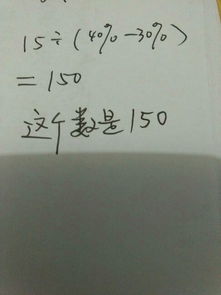 15÷(40%-30%)
=150
这个数是150